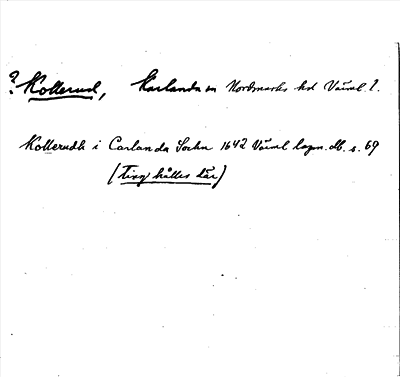 ? Kollerud, Karlanda sn Nordmarks hd Värml. l.
Kollerudh i Carlanda Sochn 1642 Värml lagm. db. s. 69
(Ting hålles där)